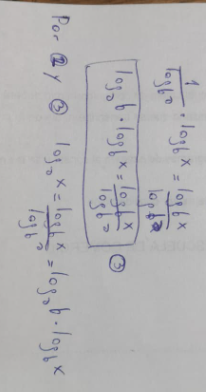 1/log_b a · log_b x = log_b x/log_b a
log_a b · log_b x = log_b x/log_b a ③
Por ② y ③ log_a x = log_b x/log_b a = log_a b · log_b x